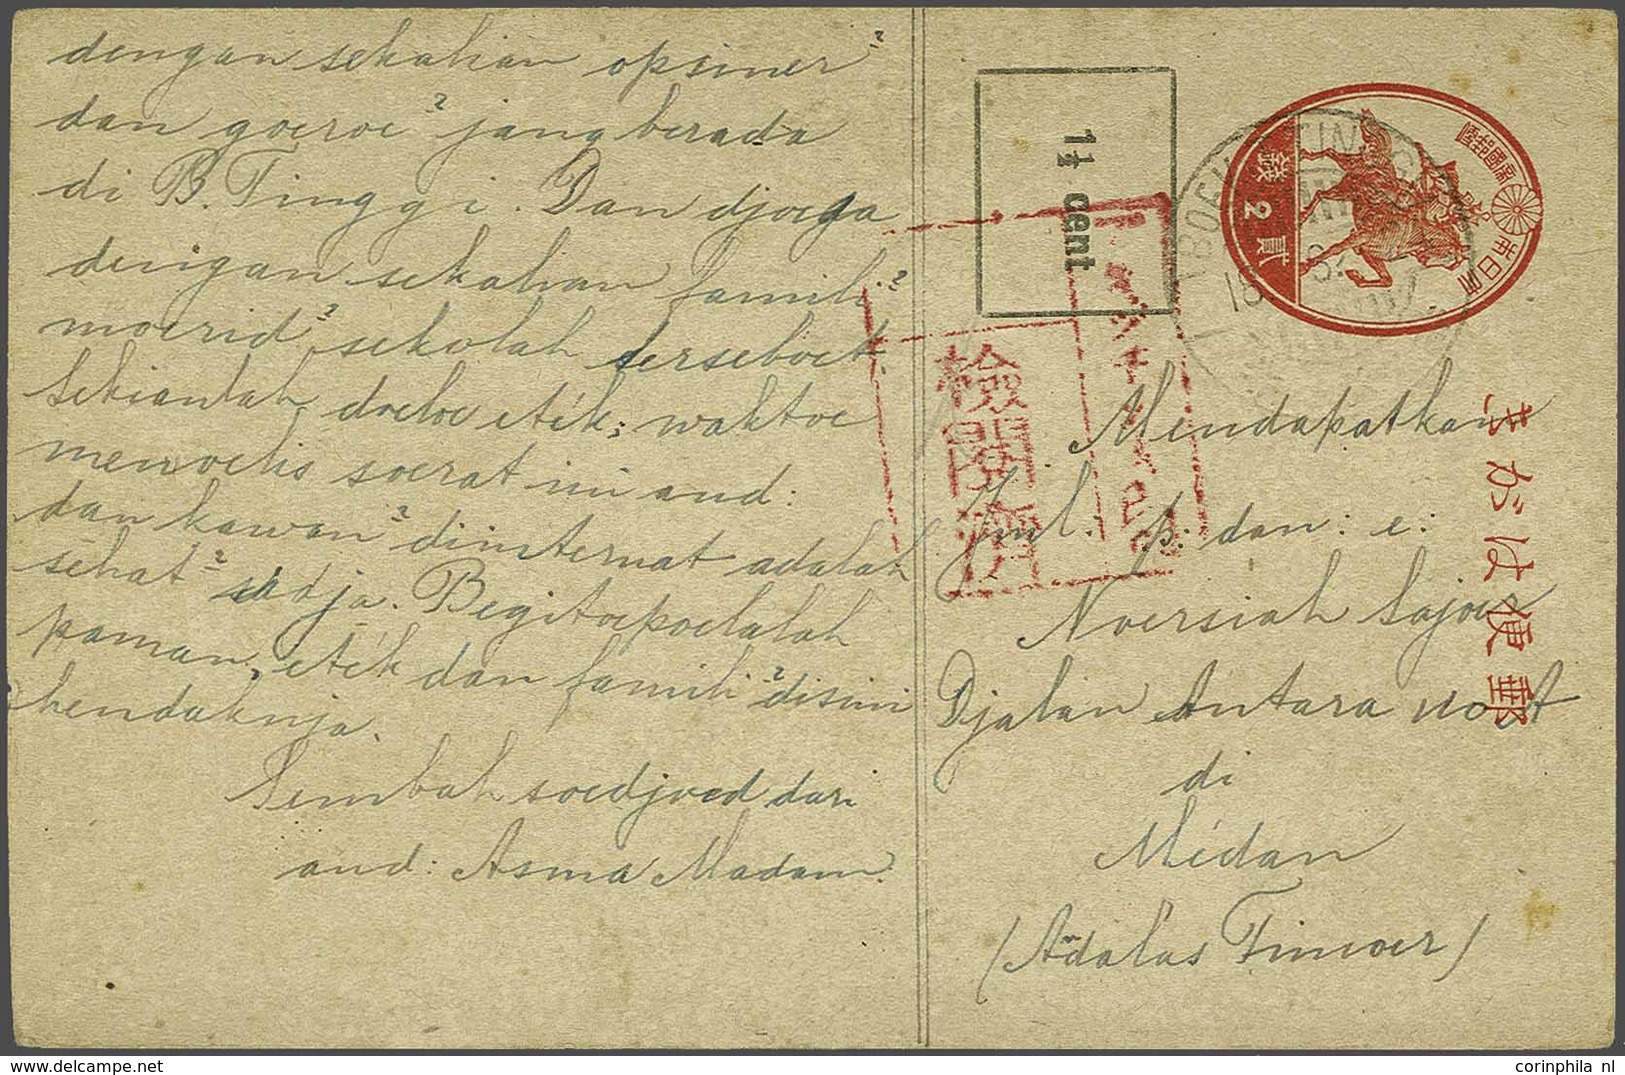 dengan sekalian opsiner²
dan goeroe² jang berada
di B. Tinggi. Dan djoega
dengan sekalian famili²
moerid² sekolah terseboet.
Sekianlah doeloe eték; waktoe
menoelis soerat ini and:
dan kawan² diinternat adalah
sehat² sadja. Begitoepoelalah
paman, eték dan famili² disini
hendaknja.
Sembah soedjoed dari
and: Asma Madam.
1½ cent
検閲済
BOEKITTINGGI
18
大日本帝國郵便
貳 2 錢
郵便はがき
Mendapatkan
Jml: p: dan: e:
Noersiah Sajoer
Djalan Antara no
di
Médan
(Adalas Timoer)
corinphila nl